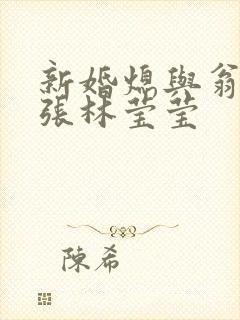 新婚熄與翁
張林莹莹
陳希